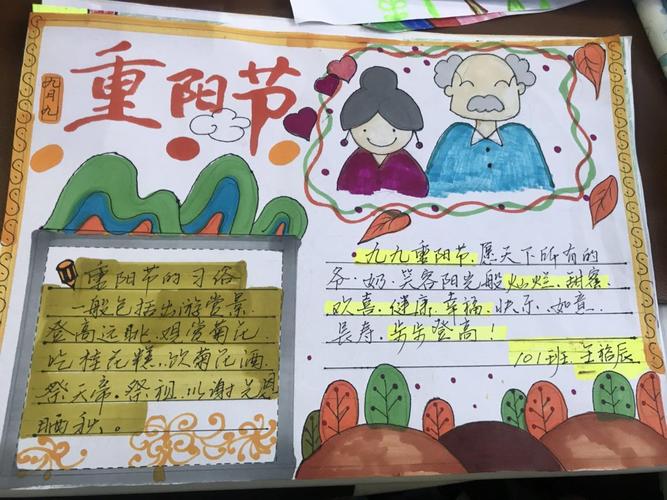 九月九
重阳节
重阳节的习俗
一般包括出游赏景、
登高远眺、观赏菊花
吃桂花糕、饮菊花酒
祭天帝、祭祖、以谢天恩
晒秋。
九九重阳节,愿天下所有的
爷、奶、笑容阳光般灿烂、甜蜜
欢喜、健康、幸福、快乐、如意、
长寿、步步登高!
101班